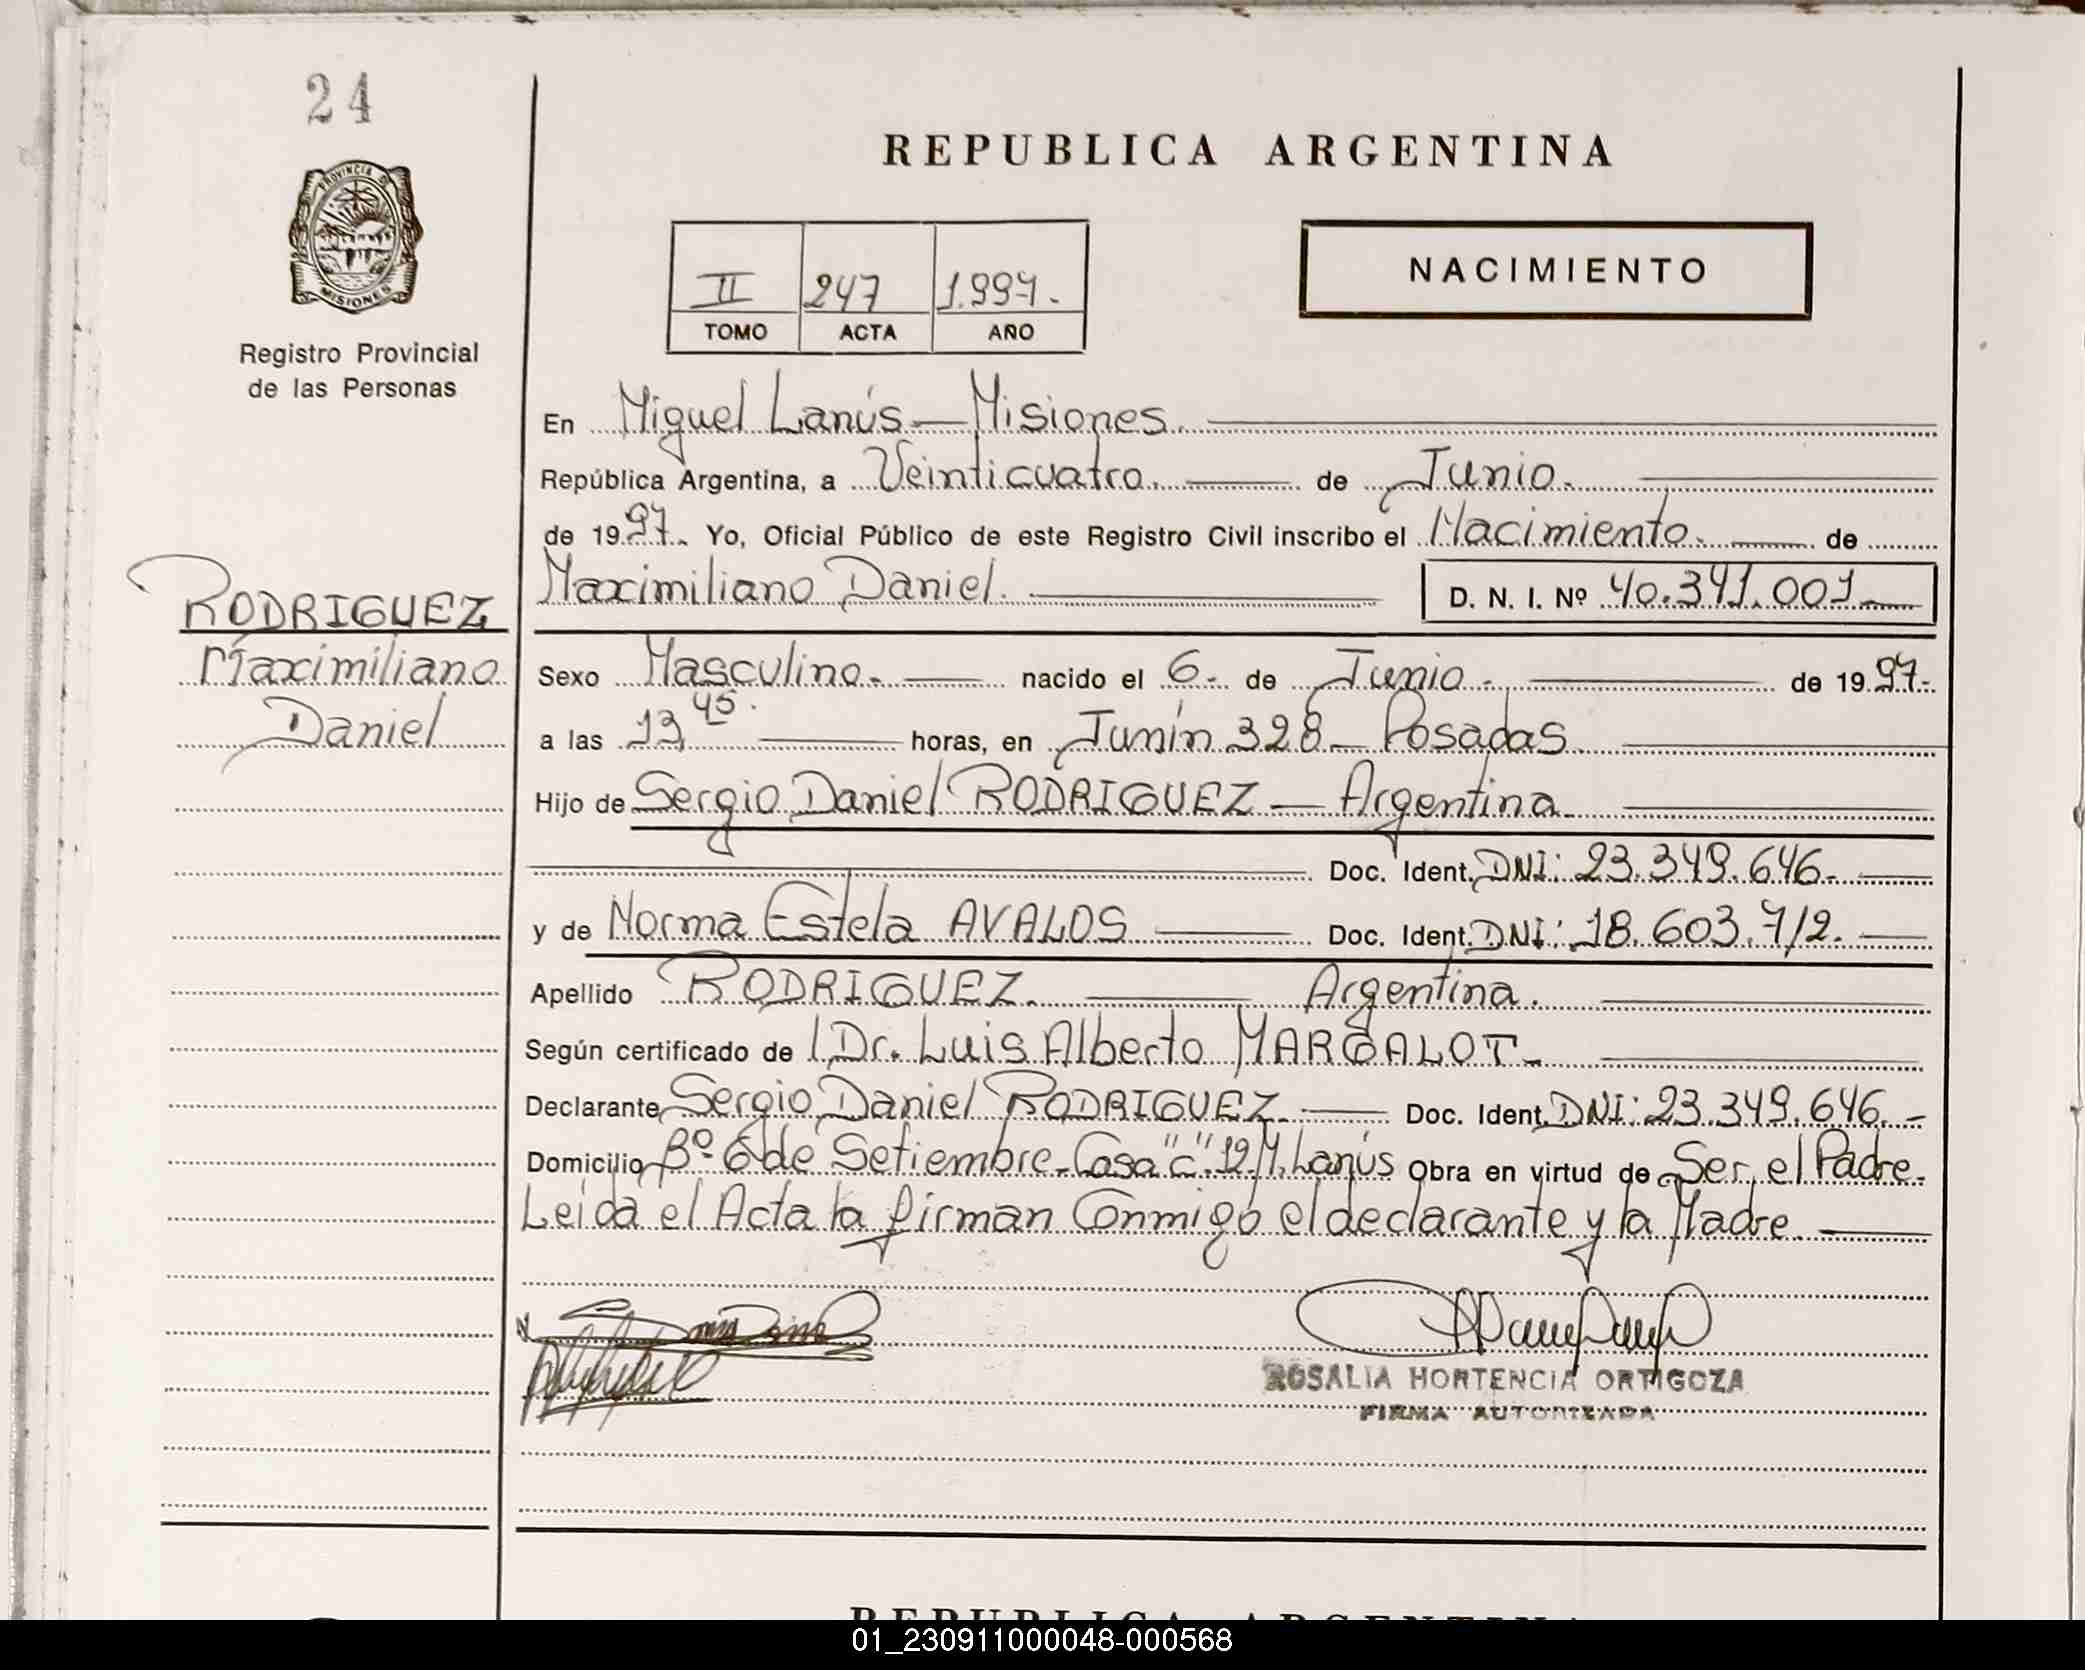 24
PROVINCIA DE
MISIONES
Registro Provincial
de las Personas
RODRIGUEZ
Maximiliano
Daniel
REPUBLICA ARGENTINA
II 247 1.997.-
TOMO ACTA AÑO
NACIMIENTO
En Miguel Lanús - Misiones.
República Argentina, a Veinticuatro. de Junio.
de 1997.- Yo, Oficial Público de este Registro Civil inscribo el Nacimiento. de
Maximiliano Daniel. D. N. I. Nº 40.341.001
Sexo Masculino.- nacido el 6.- de Junio.- de 1997.-
a las 13,45. horas, en Junín 328 - Posadas
Hijo de Sergio Daniel RODRIGUEZ - Argentina.
Doc. Ident. DNI: 23.349.646.-
y de Norma Estela AVALOS Doc. Ident. DNI: 18.603.712.
Apellido RODRIGUEZ. Argentina.
Según certificado de Dr. Luis Alberto MARGALOT.-
Declarante Sergio Daniel RODRIGUEZ. Doc. Ident. DNI: 23.349.646.-
Domicilio Bº 6 de Setiembre - Casa "c" 12 M. Lanús Obra en virtud de Ser el Padre.
Leida el Acta la firman Conmigo el declarante y la Madre.
ROSALIA HORTENCIA ORTIGOZA
FIRMA AUTORIZADA
REPUBLICA ARGENTINA
01_230911000048-000568